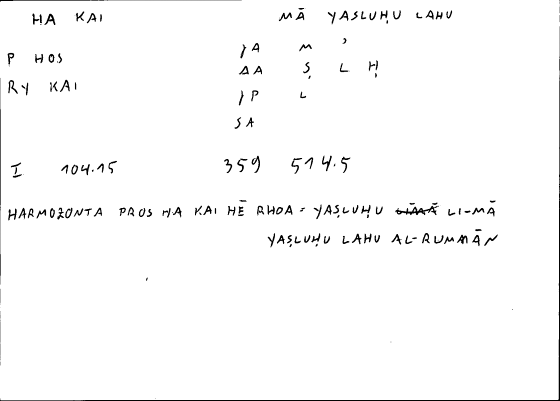 HA KAI MĀ YAṢLUḤU LAHU
M ʾ
P HOS AA Ṣ L Ḥ
RY KAI P L
SA
I 104.15 359 514.5
HARMOZONTA PROS HA KAI HĒ RHOA = YAṢLUḤU LI-MĀ
YAṢLUḤU LAHU AL-RUMMĀN